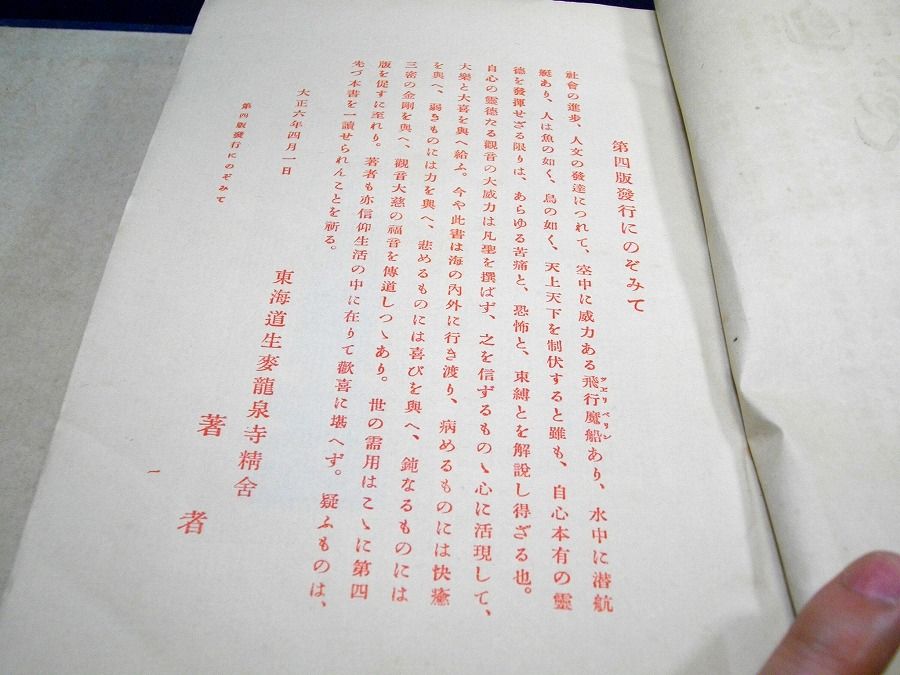 第四版發行にのぞみて
社會の進步、人文の發達につれて、空中に威力ある飛行魔船あり、水中に潜航
艇あり、人は魚の如く、鳥の如く、天上天下を制伏すると雖も、自心本有の靈
德を發揮せざる限りは、あらゆる苦痛と、恐怖と、束縛とを解說し得ざる也。
自心の靈德たる觀音の大威力は凡聖を撰ばず、之を信ずるものゝ心に活現して、
大樂と大喜を與へ給ふ。今や此書は海の內外に行き渡り、病めるものには快癒
を與へ、弱きものには力を與へ、悲めるものには喜びを與へ、鈍なるものには
三密の金剛を與へ、觀音大慈の福音を傳道しつゝあり。世の需用はこゝに第四
版を促すに至れり。著者も亦信仰生活の中に在りて歡喜に堪へず。疑ふものは、
先づ本書を一讀せられんことを祈る。
大正六年四月一日
東海道生麥龍泉寺精舍
著者
第四版發行にのぞみて
一